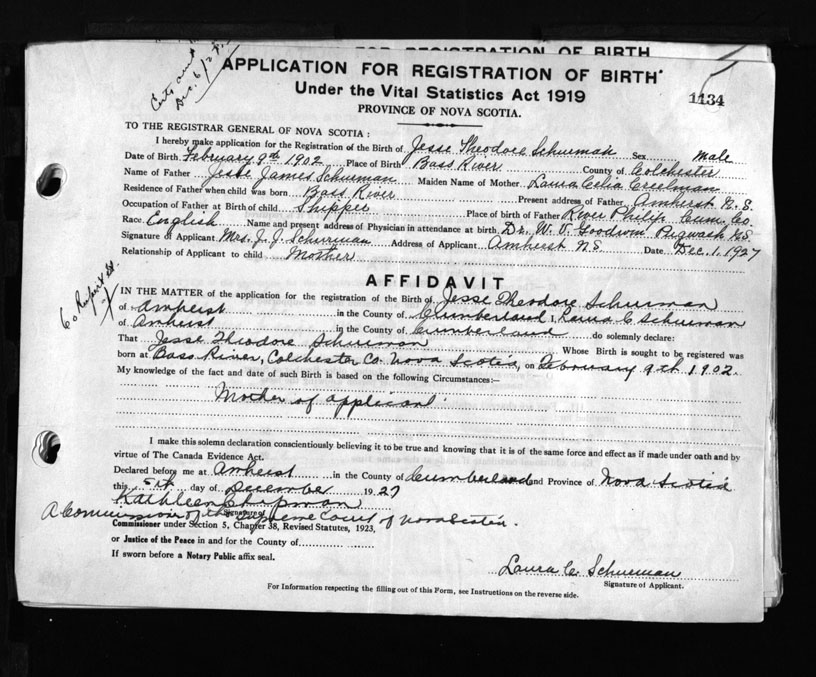 FOR REGISTRATION OF BIRTH
Certs sent
Dec. 6/27
APPLICATION FOR REGISTRATION OF BIRTH
Under the Vital Statistics Act 1919
1134
PROVINCE OF NOVA SCOTIA.
TO THE REGISTRAR GENERAL OF NOVA SCOTIA:
I hereby make application for the Registration of the Birth of Jesse Theodore Schurman Sex Male
Date of Birth February 9th 1902 Place of Birth Bass River County of Colchester
Name of Father Jesse James Schurman Maiden Name of Mother Laura Celia Creelman
Residence of Father when child was born Bass River Present address of Father Amherst N.S.
Occupation of Father at Birth of child Shipper Place of birth of Father River Philip Cum. Co.
Race English Name and present address of Physician in attendance at birth Dr. W. V. Goodwin Pugwash N.S.
Signature of Applicant Mrs. J. J. Schurman Address of Applicant Amherst N.S. Date Dec. 1, 1927
Relationship of Applicant to child Mother
60 Rupert St.
AFFIDAVIT
IN THE MATTER of the application for the registration of the Birth of Jesse Theodore Schurman
of Amherst in the County of Cumberland I, Laura C. Schurman
of Amherst in the County of Cumberland do solemnly declare:
That Jesse Theodore Schurman Whose Birth is sought to be registered was
born at Bass River, Colchester Co. Nova Scotia, on February 9th 1902.
My knowledge of the fact and date of such Birth is based on the following Circumstances:—
Mother of applicant.
I make this solemn declaration conscientiously believing it to be true and knowing that it is of the same force and effect as if made under oath and by
virtue of The Canada Evidence Act.
Declared before me at Amherst in the County of Cumberland and Province of Nova Scotia
this 5th day of December 1927
Kathleen Chapman
Signature of
A Commissioner of the Supreme Court of Nova Scotia.
Commissioner under Section 5, Chapter 38, Revised Statutes, 1923,
or Justice of the Peace in and for the County of
If sworn before a Notary Public affix seal.
Laura C. Schurman
Signature of Applicant.
For Information respecting the filling out of this Form, see Instructions on the reverse side.